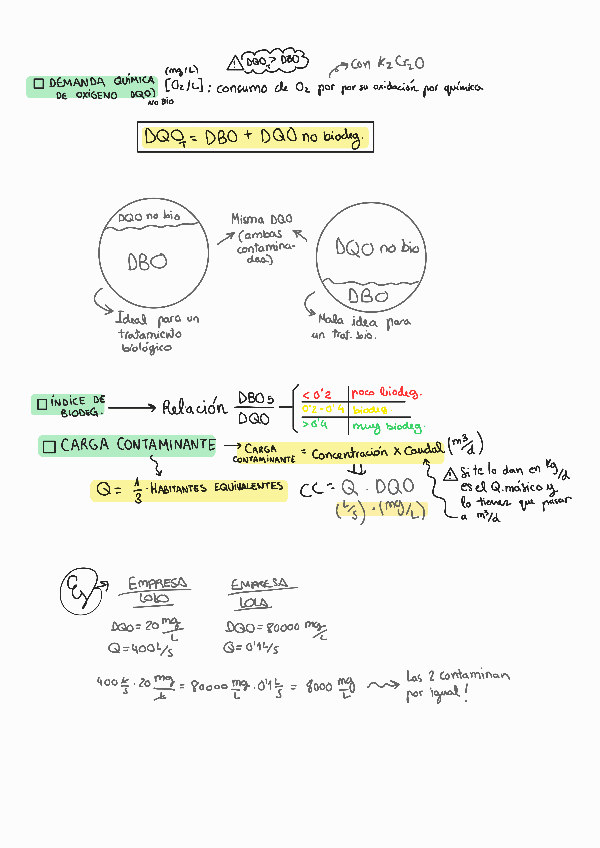 ⚠ DQO_T > DBO
→ con K2Cr2O
□ DEMANDA QUÍMICA (mg/L)
DE OXÍGENO DQO) NO BIO [O2/L] : consumo de O2 por por su oxidación por química
DQO_T = DBO + DQO no biodeg.
DQO no bio
DBO
Misma DQO
(ambas
contamina-
das)
DQO no bio
DBO
Ideal para un
tratamiento
biológico
Mala idea para
un trat. bio.
□ ÍNDICE DE
BIODEG. → Relación DBO5 / DQO
< 0'2 poco biodeg.
0'2 - 0'4 biodeg.
> 0'4 muy biodeg.
□ CARGA CONTAMINANTE → CARGA CONTAMINANTE = Concentración x Caudal (m³/d)
Q = 1/3 · HABITANTES EQUIVALENTES
CC = Q · DQO
(L/s) · (mg/L)
⚠ Si te lo dan en kg/d
es el Q. másico y
lo tienes que pasar
a m³/d
Ej →
EMPRESA
LOLO
DQO = 20 mg/L
Q = 400 L/s
EMPRESA
LOLA
DQO = 80000 mg/L
Q = 0'1 L/s
400 L/s · 20 mg/L = 80000 mg/L · 0'1 L/s = 8000 mg/L → Las 2 contaminan
por igual!